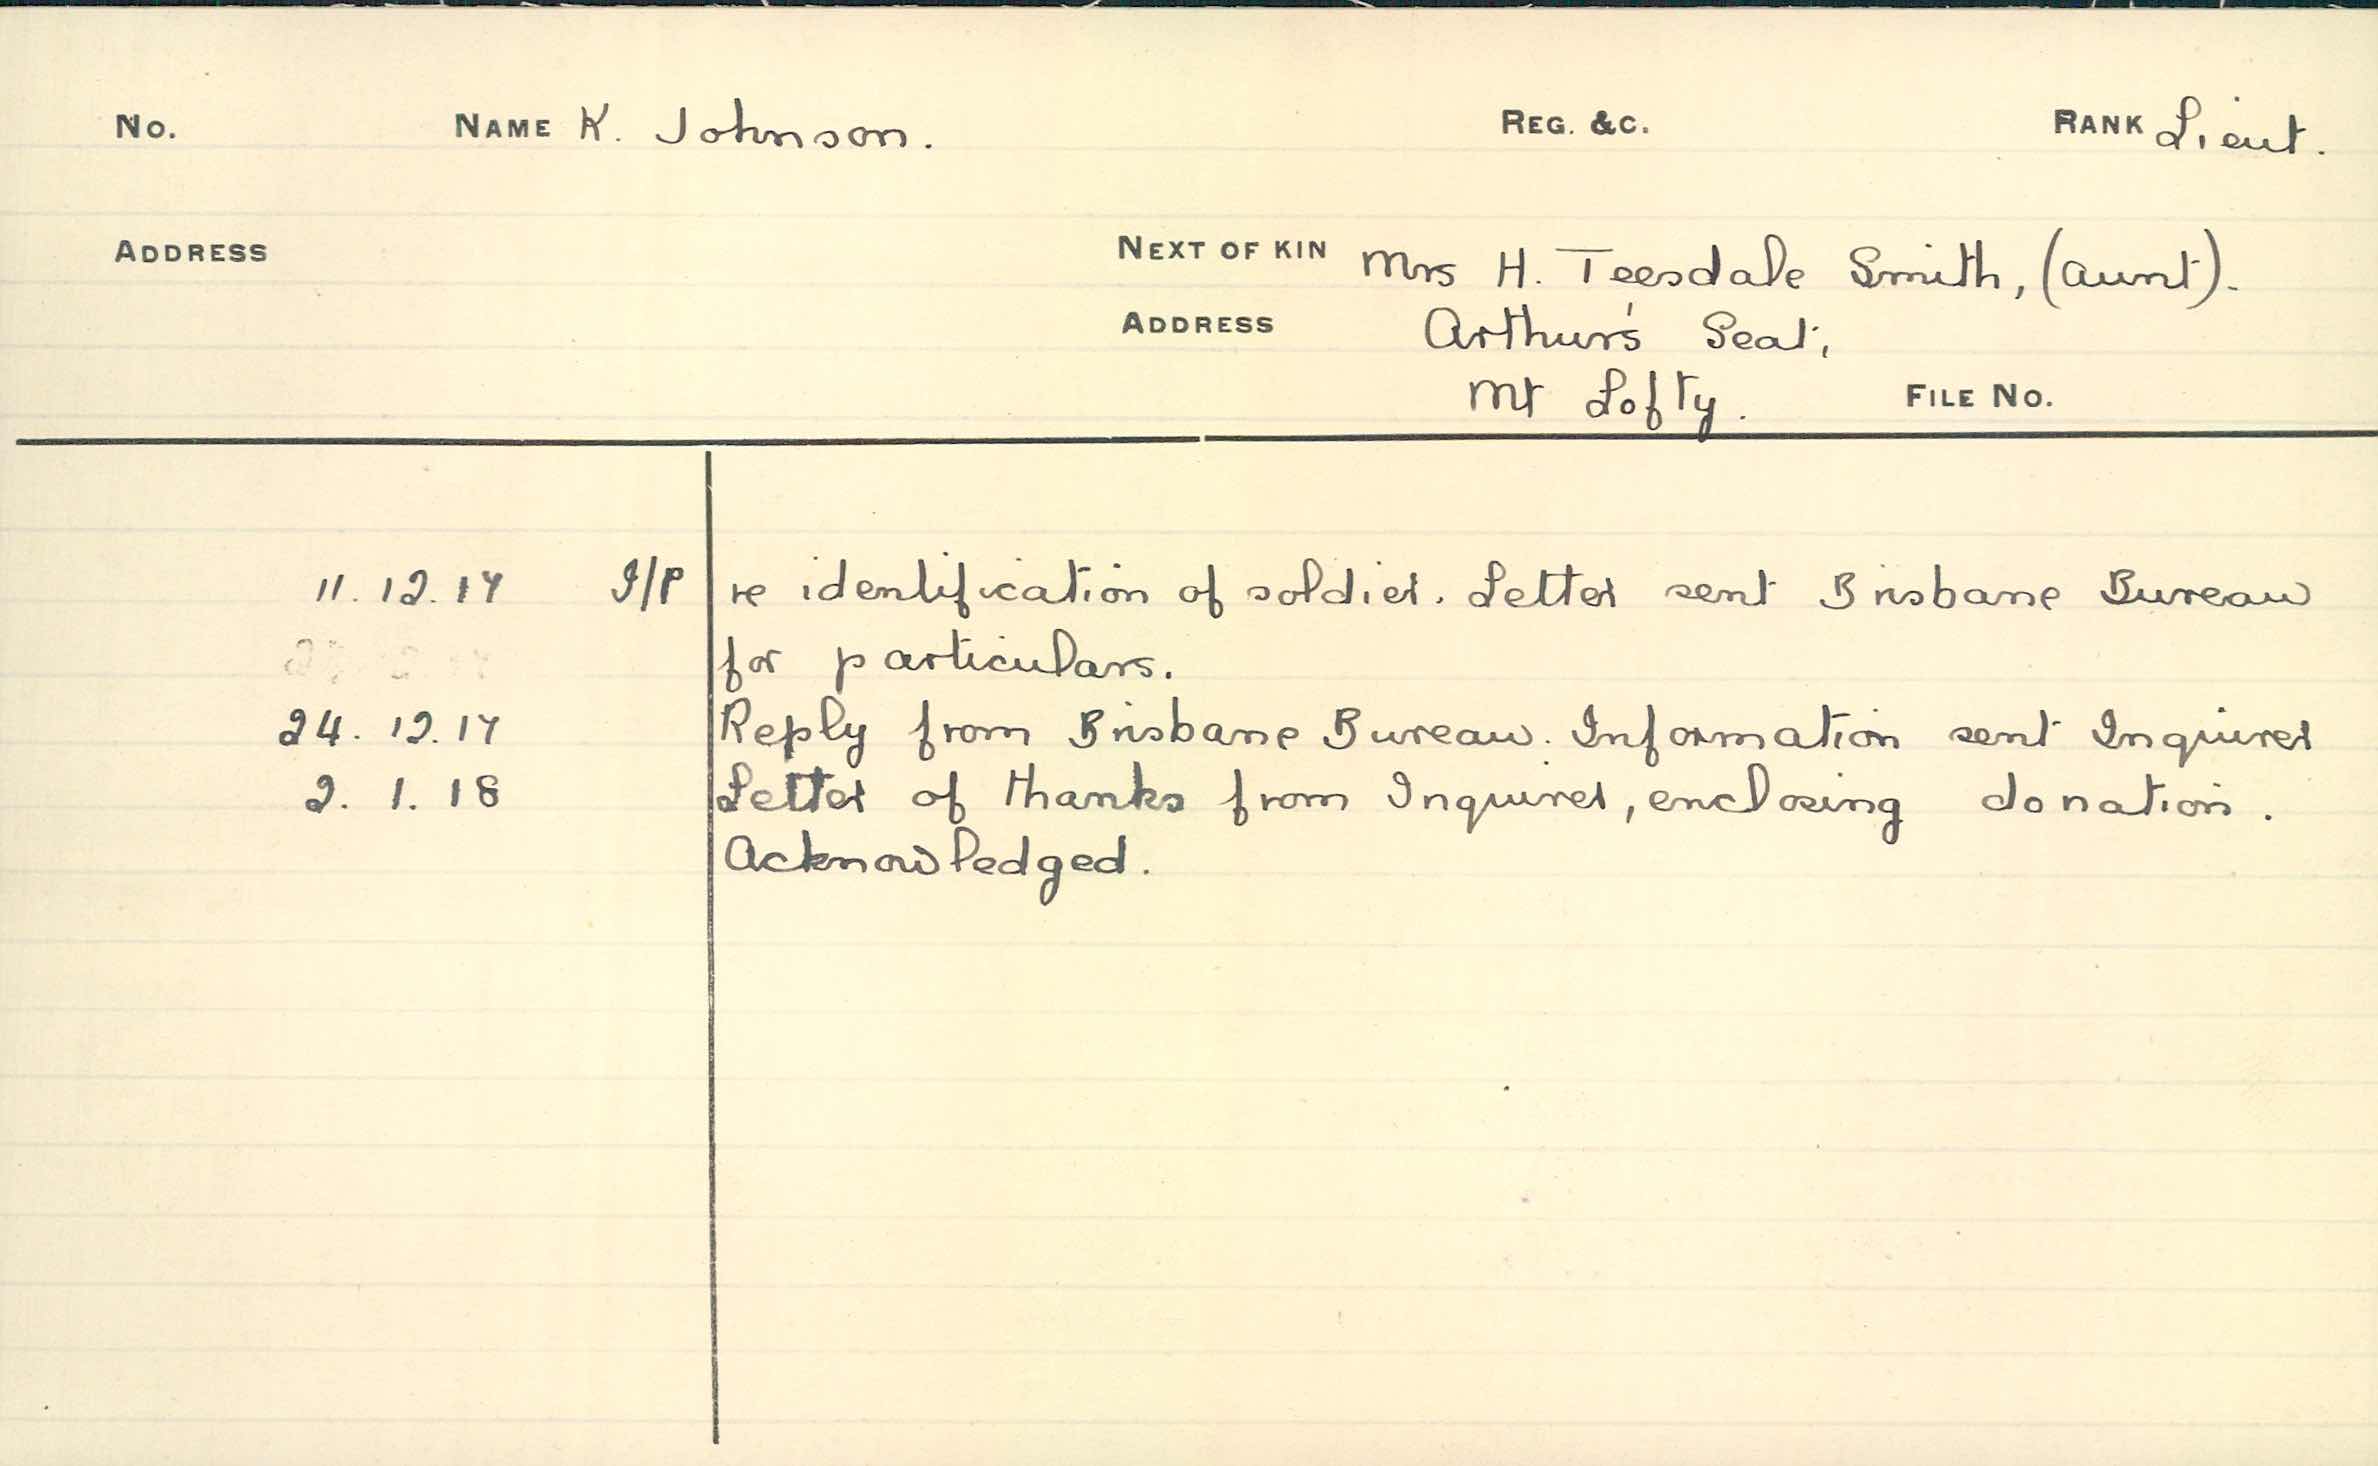 No. NAME K. Johnson. REG. &C. RANK Lieut.
ADDRESS NEXT OF KIN Mrs H. Teesdale Smith, (aunt).
ADDRESS Arthur's Seat,
Mt Lofty. FILE No.
11. 12. 17 I/P re identification of soldier. Letter sent Brisbane Bureau
for particulars.
24. 12. 17 Reply from Brisbane Bureau. Information sent Inquirer
2. 1. 18 Letter of thanks from Inquirer, enclosing donation.
Acknowledged.